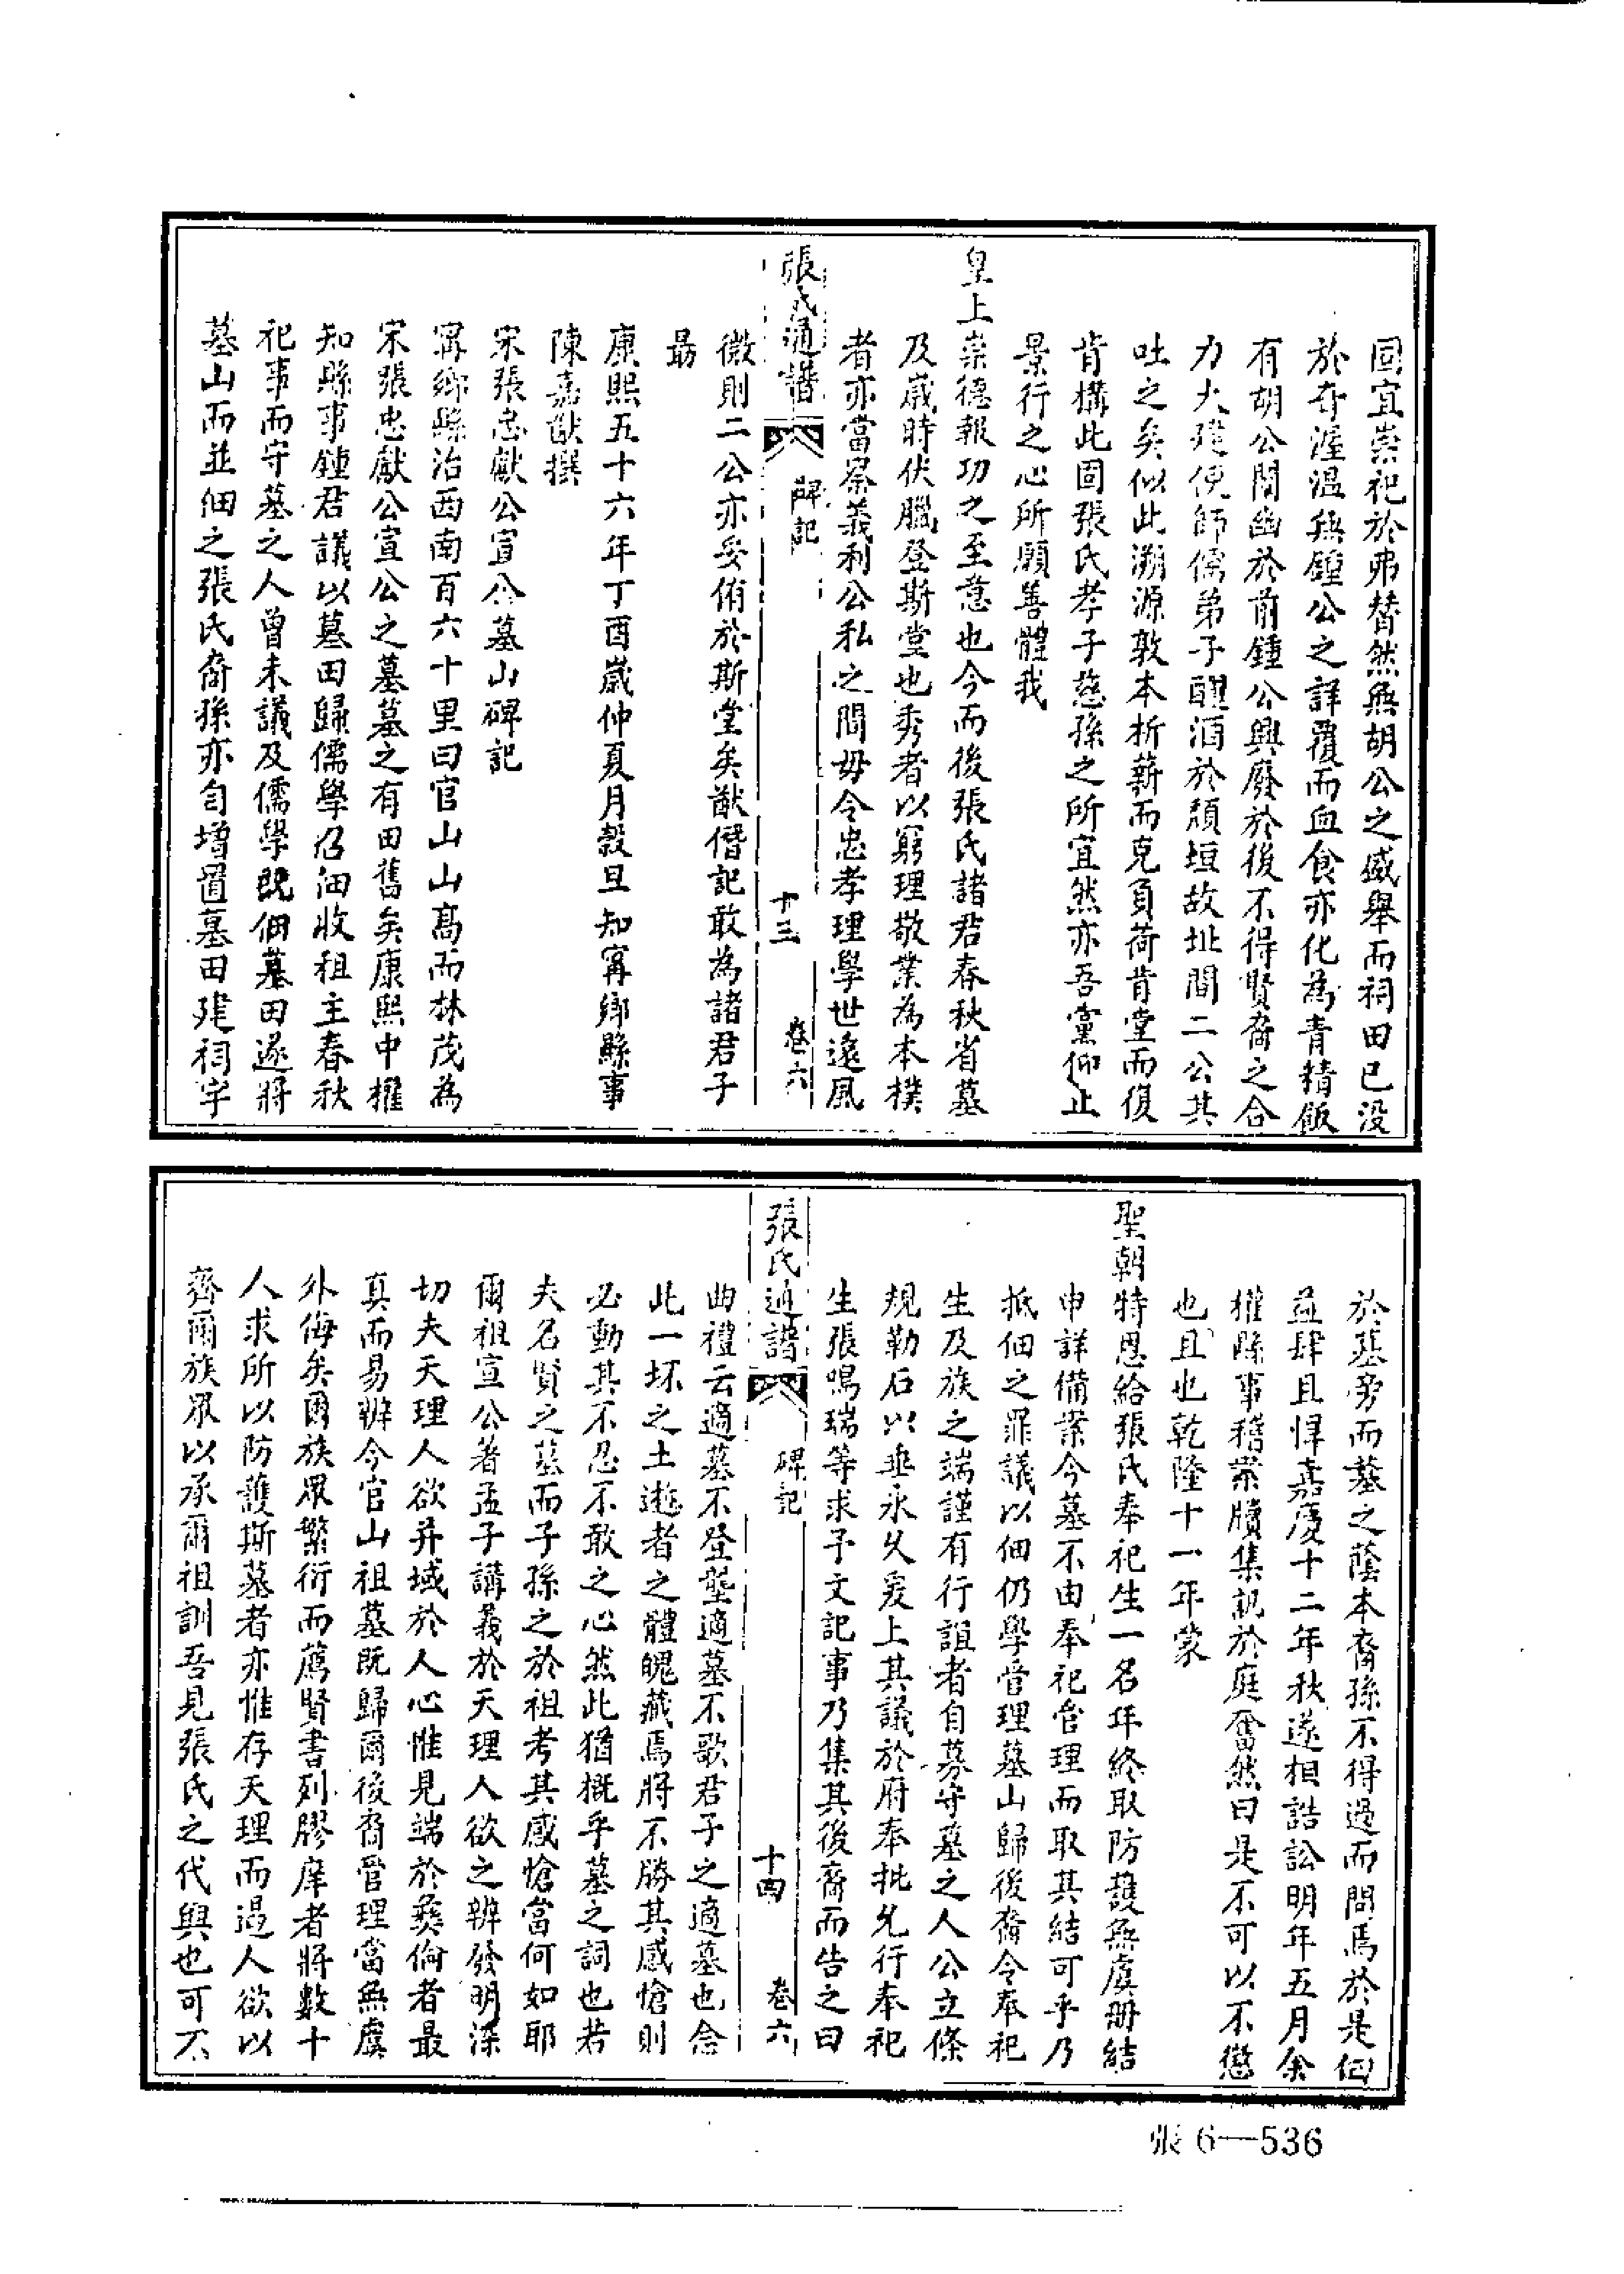 固宜崇祀於弗替然無胡公之盛舉而祠田已没
於奇渥温無鍾公之詳覆而血食亦化為青精飯
有胡公開幽於前鍾公興廢於後不得賢裔之合
力大建使師儒弟子醴酒於頹垣故址間二公其
吐之矣似此溯源敦本析薪而克負荷肯堂而復
肯構此固張氏孝子慈孫之所宜然亦吾黨仰止
景行之心所願善體我
皇上崇德報功之至意也今而後張氏諸君春秋省墓
及歲時伏臘登斯堂也秀者以窮理敬業為本樸
者亦當察義利公私之間毋令忠孝理學世遠風
張氏通譜 碑記 十三 卷六
微則二公亦妥侑於斯堂矣猷僭記敢為諸君子
最
康熙五十六年丁酉歲仲夏月穀旦知甯鄉縣事
陳嘉猷撰
宋張忠獻公宣公墓山碑記
甯鄉縣治西南百六十里曰官山山高而林茂為
宋張忠獻公宣公之墓墓之有田舊矣康熙中權
知縣事鍾君議以墓田歸儒學召佃收租主春秋
祀事而守墓之人曾未議及儒學既佃墓田遂將
墓山而並佃之張氏裔孫亦勻增置墓田建祠宇
於墓旁而墓之蔭本裔孫不得過而問焉於是佃
益肆且悍嘉慶十二年秋遂相誥訟明年五月余
權縣事稽案牘集訊於庭奮然曰是不可以不懲
也且也乾隆十一年蒙
聖朝特恩給張氏奉祀生一名年終取防護無虞册結
申詳備案今墓不由奉祀管理而取其結可乎乃
抵佃之罪議以佃仍學管理墓山歸後裔令奉祀
生及族之端謹有行誼者自募守墓之人公立條
規勒石以垂永久爰上其議於府奉批允行奉祀
生張鳴瑞等求予文記事乃集其後裔而告之曰
張氏通譜 碑記 十四 卷六
曲禮云適墓不登壟適墓不歌君子之適墓也念
此一坏之土逝者之體魄藏焉將不勝其感愴則
必動其不忍不敢之心然此猶概乎墓之詞也若
夫名賢之墓而子孫之於祖考其感愴當何如耶
爾祖宣公著孟子講義於天理人欲之辨發明深
切夫天理人欲并域於人心惟見端於彝倫者最
真而易辨今官山祖墓既歸爾後裔管理當無虞
外侮矣爾族眾繁衍而薦賢書列膠庠者將數十
人求所以防護斯墓者亦惟存天理而遏人欲以
齊爾族眾以承爾祖訓吾見張氏之代興也可不
張6—536